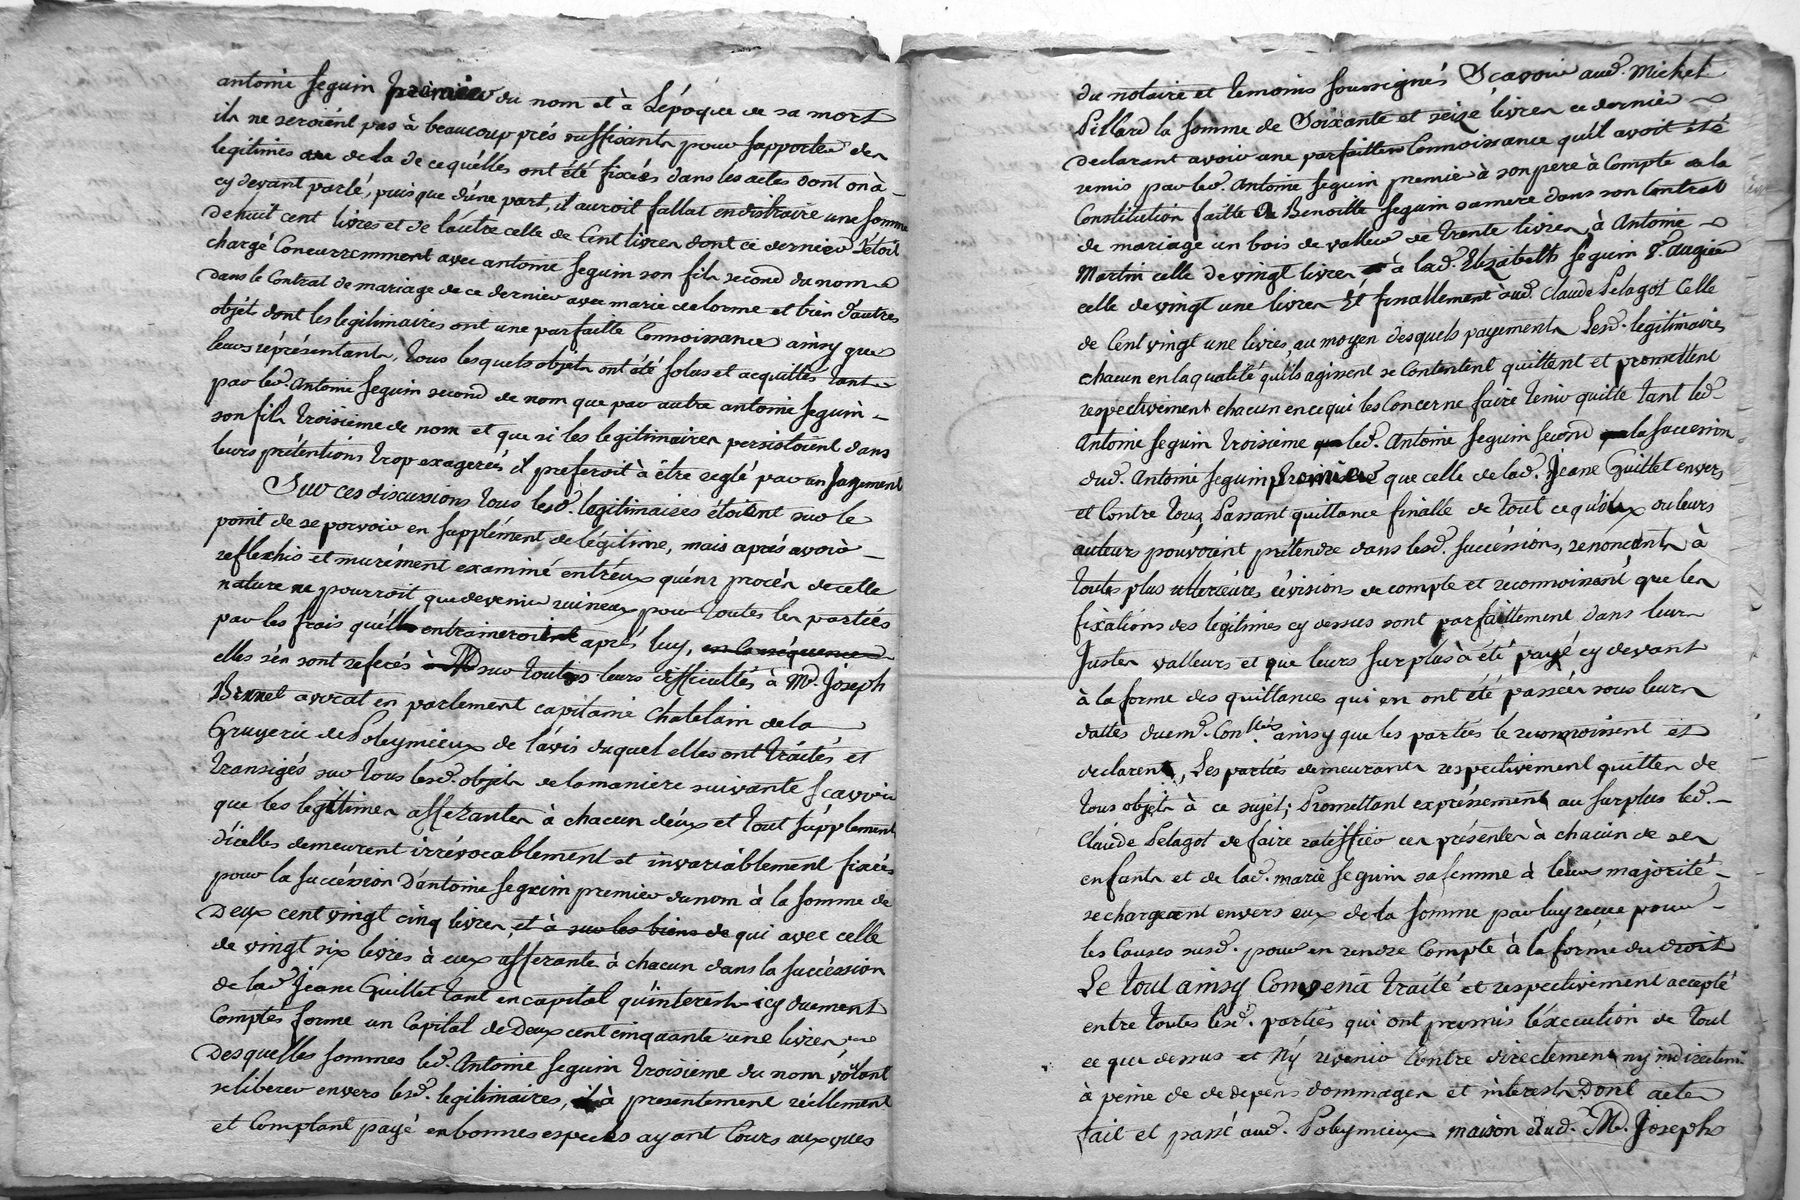 antoine Seguin premier du nom et à L'époque de sa mort
ils ne seroient pas à beaucoup prés suffisants pour supporter des
legitimes au de la de cequ'elles ont été fixées dans les actes dont on à
cy devant parlé, puisque d'une part, il auroit fallut en distraire une somme
de huit cent livres et de l'autre celle de Cent livres dont ce dernier s'étoit
chargé Concurremment avec antoine Seguin son fils second du nom
dans le Contrat de mariage de ce dernier avec marie delorme et bien d'autres
objéts dont les legitimaires ont une parfaitte Connoissance ainsy que
leurs réprésentants, tous lesquels objets ont été solus et acquittés tant
par led. Antoine Seguin second de nom que par autre antoine Seguin
son fils troisieme de nom et que si les legitimaires persistoient dans
leurs prétentions trop exagerées il preferoit à être reglé par un Jugement
Sur ces discussions tous lesd. legitimaires étoient sur le
point de se porvoir en supplément de légitime, mais aprés avoir
reflechis et murément examiné entr'eux qu'un procés de celle
nature ne pourroit que devenir ruineux pour toutes les parties
par les frais qu'elle entraineroit aprés luy, en Conséquence
elles s'en sont referés à M.d sur toutes leurs difficultés à M.d Joseph
Brunet avocat en parlement capitaine Chatelain de la
Gruyerie de Poleymieux de l'avis duquel elles ont traités et
transigés sur tous lesd. objets de la maniere suivante Sçavoir
que les legitimes afferantes à chacun d'eux et tout supplement
d'icelles demeurent irrévocablement et invariablement fixées
pour la succéssion D'antoine Seguin premier du nom à la somme de
Deux cent vingt cinq livres, et à sur les biens de qui avec celle
de vingt six livres à eux afferante à chacun dans la succéssion
de lad. Jeane Guillet tant en capital qu'interests icy duement
Comptés forme un Capital de Deux cent cinquante une livres
Desquelles sommes led. Antoine Seguin troisieme du nom voulant
se liberer envers lesd. legitimaires, il à presentement réellement
et Comptant payé en bonnes especes ayant Cours aux vues
du notaire et temoins soussignés Sçavoir aud. Michel
Pillard la somme de Soixante et seize livres ce dernier
declarant avoir une parfaitte Connoissance qu'il avoit été
remis par led. Antoine Seguin premier à son pere à Compte de la
Constitution faitte à Benoitte Seguin sa mere dans son Contrat
de mariage un bois de valleur de trente livres, à Antoine
Martin celle de vingt livres à lad. Elizabeth Seguin
celle de vingt une livres Et finallement aud. Claude Pelagot Celle
de Cent vingt une livres, au moyen desquels payements Lesd. legitimaires
chacun en la qualité qu'ils agissent se Contentent quittent et promettent
respectivement chacun en ce qui les Concerne faire tenir quitte tant led.
Antoine Seguin troisieme led. Antoine Seguin second la succession
dud. Antoine Seguin premier que celle de lad. Jeane Guillet envers
et Contre tous, Passant quittance finalle de tout ce qu'eux ou leurs
auteurs pouvoient prétendre dans lesd. succéssions, renonçants à
toutes plus ulterieures révisions de compte et reconnoissent que les
fixations des legitimes cy dessus sont parfaittement dans leurs
Justes valleurs et que leurs surplus à été payé cy devant
à la forme des quittances qui en ont été passées sous leurs
dattes duem.t Con.llées ainsy que les parties le reconnoissent et
declarent, Les parties demeurants respectivement quittes de
tous objets à ce sujet; Promettant expréssement au surplus led.
Claude Pelagot de faire ratiffier ces présentes à chacun de ses
enfants et de lad. marie Seguin sa femme à leur majorité
se chargeant envers eux de la somme par luy recue pour
les Causes susd. pour en rendre Compte à la forme du droit
Le tout ainsy Convenu traité et respectivement accepté
entre toutes lesd. parties qui ont promis l'éxecution de tout
ce que dessus et n'y revenir Contre directement ny indirectem.t
à peine de de depens dommages et interests Dont acte
fait et passé aud. Poleymieux maison dud. M.d Joseph